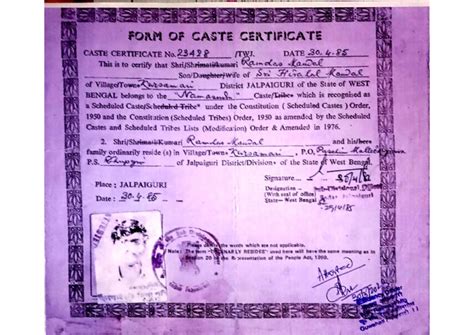 FORM OF CASTE CERTIFICATE
CASTE CERTIFICATE No. 23498 /TWJ. DATE 30.4.85
This is to certify that Shri/Shrimati/Kumari Ramdas Mandal
Son/Daughter/wife of Sri Hiralal Mandal
of Village/Town District JALPAIGURI of the State of WEST
BENGAL belongs to the Namasudra Caste/ which is recognised as
a Scheduled Caste/Scheduled Tribe under the Constitution (Scheduled Castes) Order,
1950 and the Constitution (Scheduled Tribes) Order, 1950 as amended by the Scheduled
Castes and Scheduled Tribes Lists (Modification) Order & Amended in 1976.
2. Shri/Shrimati/Kumari Ramdas Mandal and his/her
family ordinarily reside(s) in Village/Town P.O.
P.S. of Jalpaiguri District/Division of the State of West Bengal.
Signature
Place : JALPAIGURI
Designation
(With seal of office)
Date : 30.4.85
State—West Bengal
Please delete the words which are not applicable.
(Note: The term "ORDINARILY RESIDES" used here will have the same meaning as in
Section 20 of the Representation of the People Act, 1950.